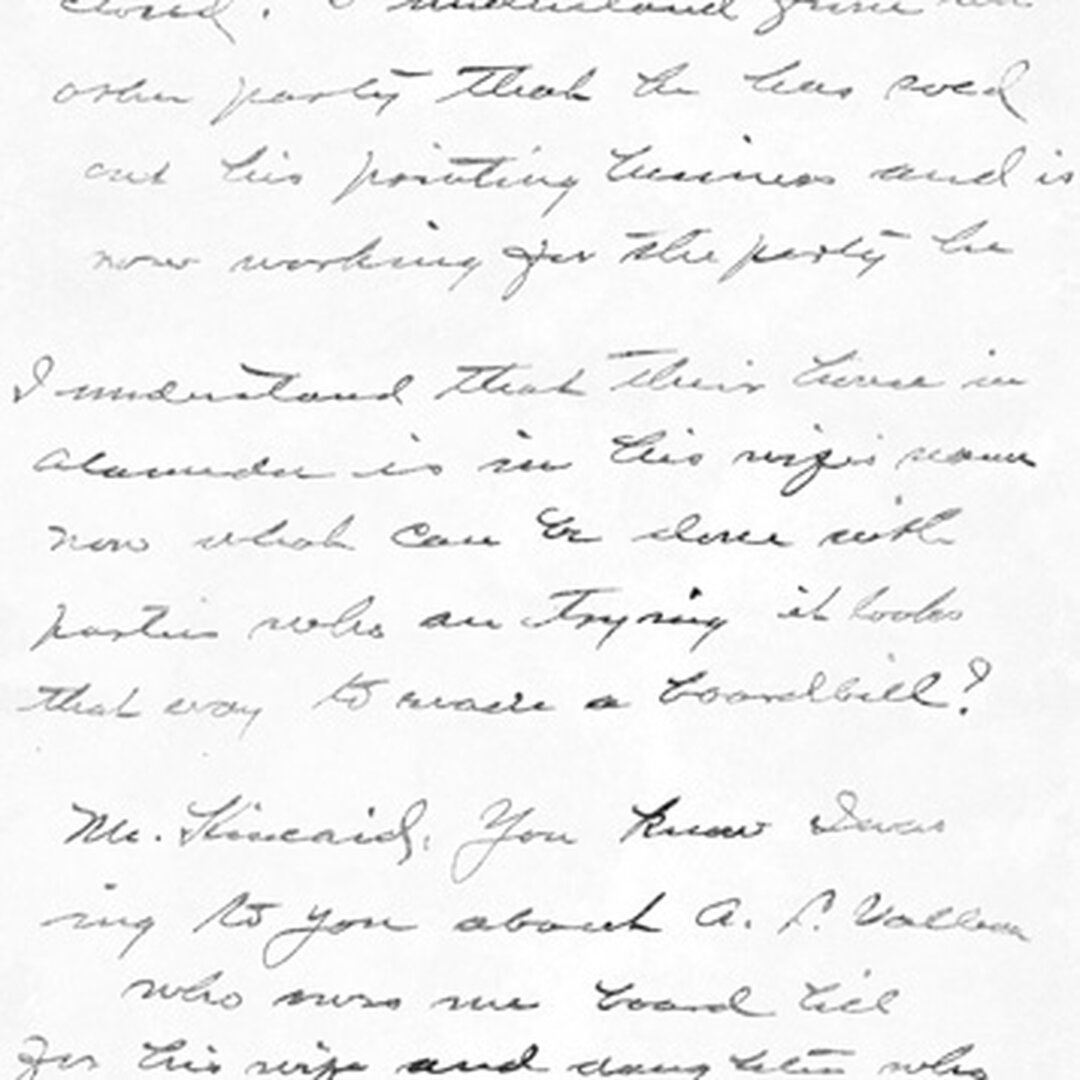 closed. I understand from an
other party that he has sold
out his printing business and is
now working for the party he
I understand that their house in
Alameda is in his wife's name
now what can be done with
parties who are trying it looks
that way to evade a boardbill?
Mr. Kincaid. You know I was
ing to you about A. P.
who owes me board bill
for his wife and daughter who